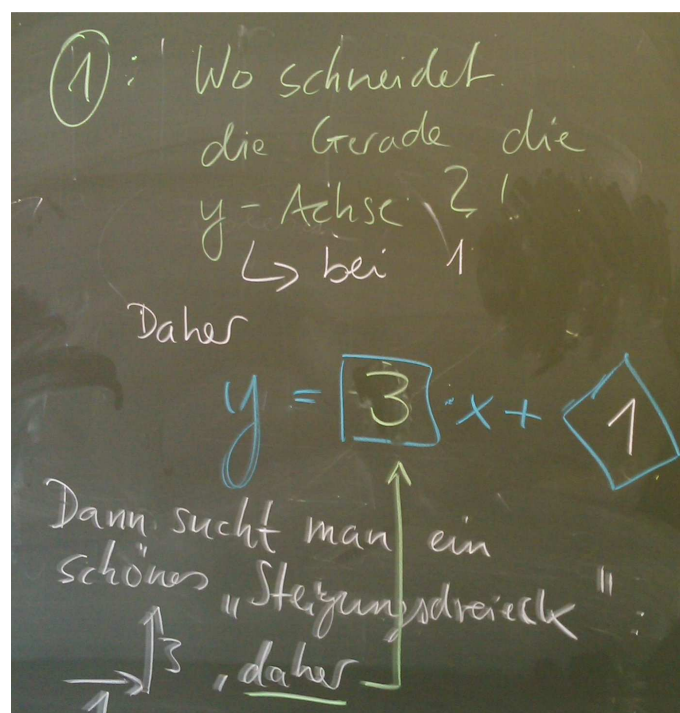 1: Wo schneidet
die Gerade die
y-Achse?
↳ bei 1
Daher
y = 3·x + 1
Dann sucht man ein
schönes „Steigungsdreieck":
1 3, daher